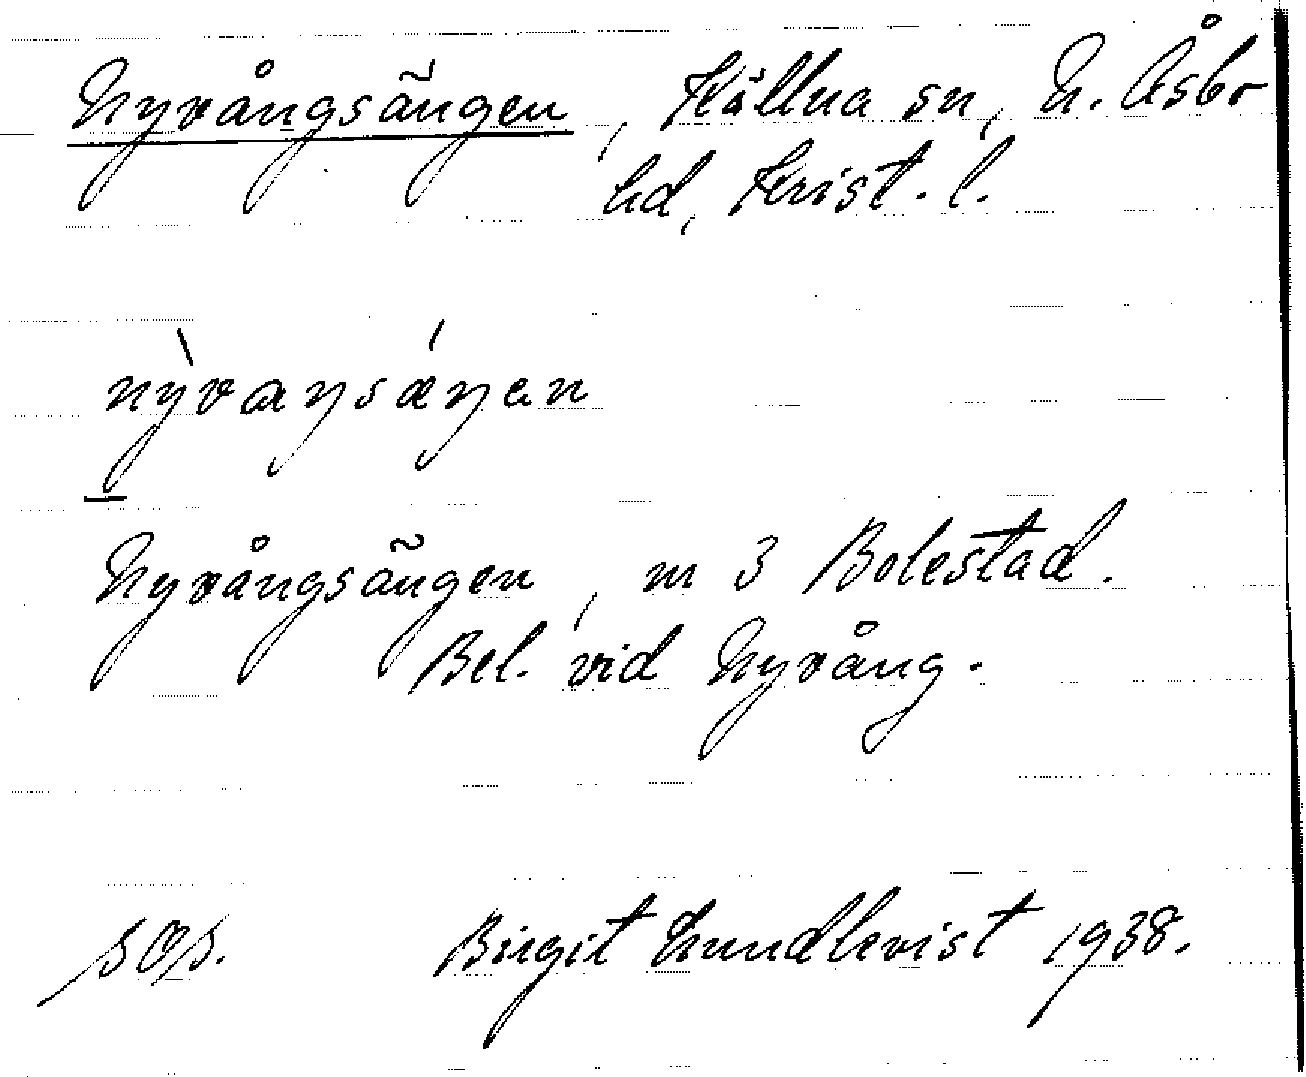 Nyvångsängen, Källna sn, N. Åsbo
hd, Krist. l.
nỳvaŋsǽŋen
Nyvångsängen, m 3 Bolestad.
Bel. vid Nyvång.
Birgit Lundkvist 1938.